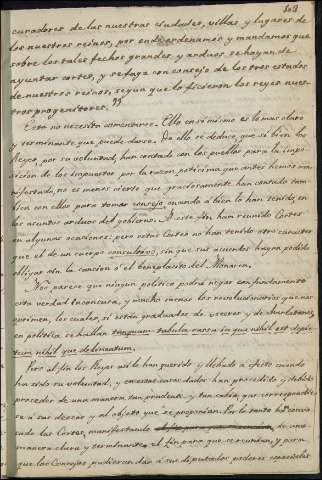 303
curadores de las nuestras ciudades, villas, y lugares de
los nuestros reinos, por ende ordenamos y mandamos que
sobre los tales fechos grandes y arduos se hayan de
ayuntar cortes, y se faga con consejo de los tres estados
de nuestros reinos, segun que lo ficieron los reyes nues-
tros progenitores.
Esto no necesita comentarse. Ello en sí mismo es lo mas claro
y terminante que puede darse. De ello se deduce, que si bien los
Reyes, por su voluntad, han contado con los pueblos para la impo-
sicion de los impuestos por la razon politica que antes hemos ma-
nifestado, no es menos cierto que graciosamente han consultado tam-
bien con ellos para tomar consejo cuando á bien lo han tenido, en
los asuntos arduos del gobierno. A este fin han reunido Cortes
en algunas ocasiones: pero estas Cortes no han tenido otro caracter
que el de un cuerpo consultivo, sin que sus acuerdos hayan podido
obligar sin la sancion ó el beneplacito del Monarca.
Nos parece que ningun politico podrá negar con fundamento
esta verdad inconcusa, y mucho menos los revolucionarios que nos
oprimen, los cuales, si están graduados de y de charlatanes,
en politica se hallan tanquam tabula rassa in qua nihil est depic-
tum, nihil que delineatum.
Pero al fin los Reyes asi lo han querido y llevado á efecto cuando
ha sido su voluntad, y en estos casos dados han procedido y debido
proceder de una manera tan prudente y tan sabia, que correspondie-
se á sus deseos y al objeto que se proponian. Por lo tanto han convo-
cado las Cortes, manifestando de una
manera clara y terminante el fin para que se reunian, y para
que los Concejos pudiesen dar á sus diputados poderes especiales